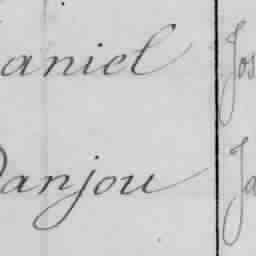 aniel Jos
Danjou Ja